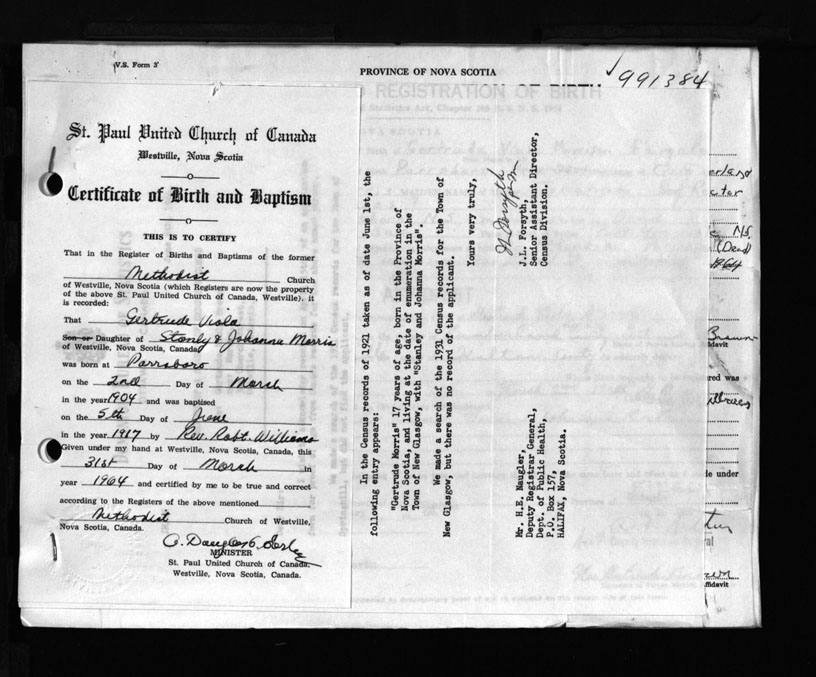 V.S. Form 3
PROVINCE OF NOVA SCOTIA
991384
REGISTRATION OF BIRTH
St. Paul United Church of Canada
Westville, Nova Scotia
Certificate of Birth and Baptism
THIS IS TO CERTIFY
That in the Register of Births and Baptisms of the former
Methodist Church
of Westville, Nova Scotia (which Registers are now the property
of the above St. Paul United Church of Canada, Westville). it
is recorded:
That Gertrude Viola
Son or Daughter of Stanly & Johanna Morris
of Westville, Nova Scotia, Canada
was born at Parrsboro
on the 2nd Day of March
in the year 1904 and was baptised
on the 5th Day of June
in the year 1917 by Rev. Robt. Williams
Given under my hand at Westville, Nova Scotia, Canada, this
31st Day of March in
year 1964 and certified by me to be true and correct
according to the Registers of the above mentioned
Methodist Church of Westville,
Nova Scotia, Canada.
MINISTER
St. Paul United Church of Canada.
Westville, Nova Scotia, Canada.
In the Census records of 1921 taken as of date June 1st, the
following entry appears:
"Gertrude Morris" 17 years of age, born in the Province of
Nova Scotia, and living at the date of enumeration in the
Town of New Glasgow, with "Stanley and Johanna Morris".
We made a search of the 1931 Census records for the Town of
New Glasgow, but there was no record of the applicant.
Yours very truly,
J.L. Forsyth,
Senior Assistant Director,
Census Division.
Mr. H.E. Naugler,
Deputy Registrar General,
Dept. of Public Health,
P.O. Box 157,
HALIFAX, Nova Scotia.
N.S.
(Dead)
Brown